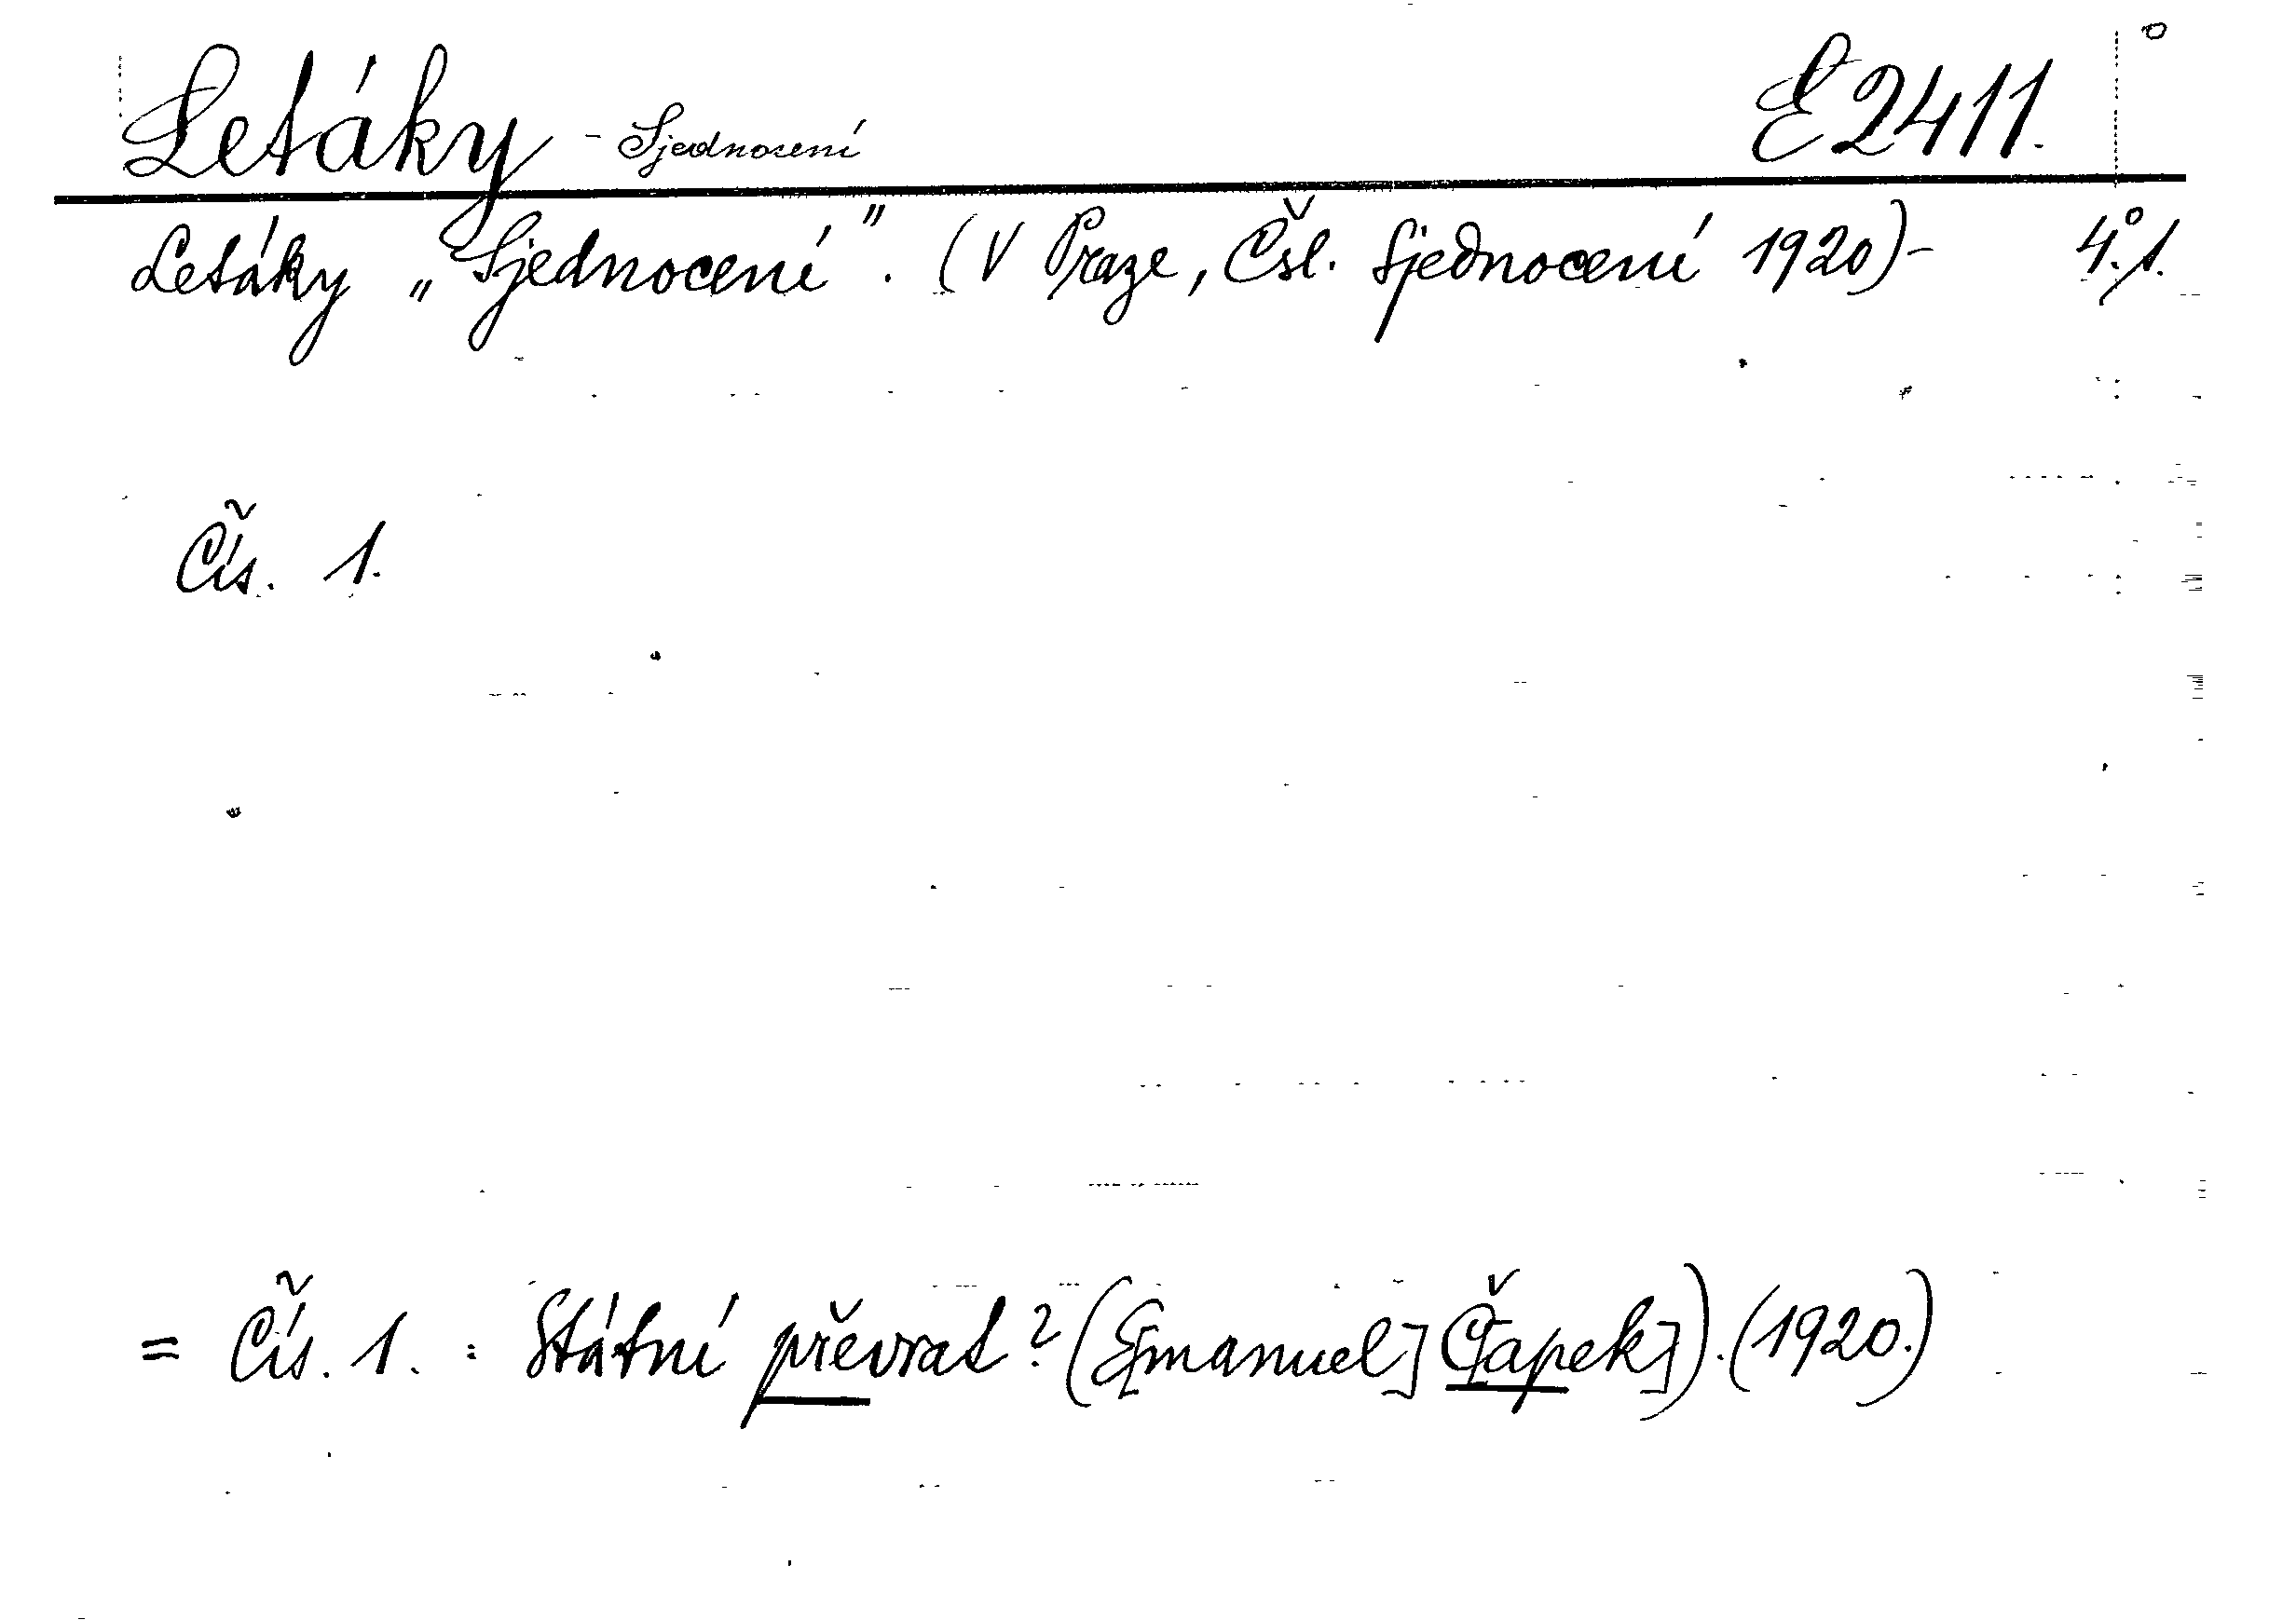 Letáky - Sjednocení E 2411.
Letáky „Sjednocení". (V Praze, Čsl. Sjednocení 1920)- 4.° 1.
Čís. 1.
= Čís. 1. : Státní převrat? (E[manuel] Č[apek]). (1920.)